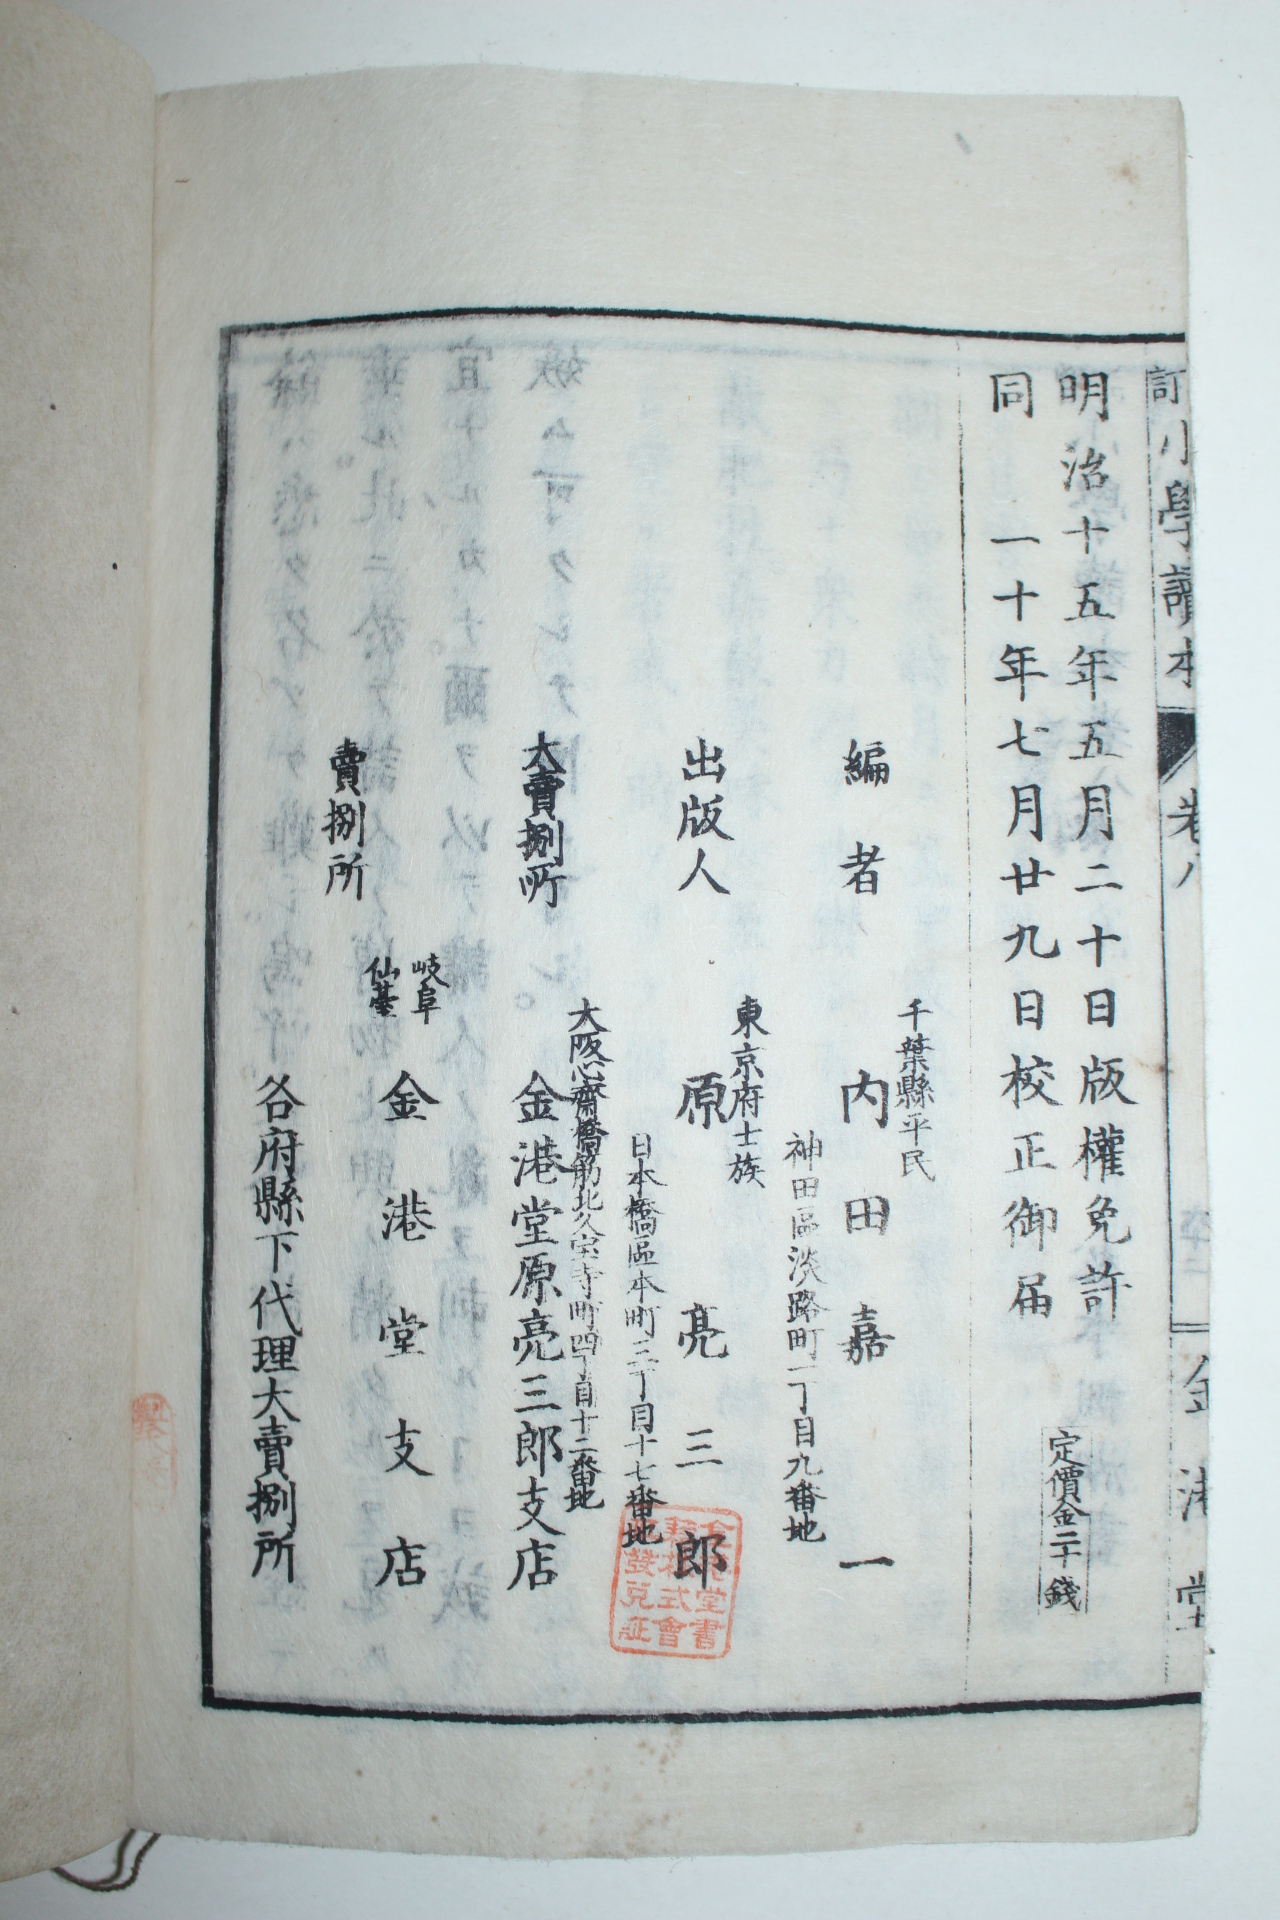 訂小學讀本
卷八
金港堂
明治十五年五月二十日版權免許
同一十年七月廿九日校正御届
定價金二十錢
千葉縣平民
編者 内田嘉一
神田區淡路町一丁目九番地
東京府士族
出版人 原亮三郎
日本橋區本町三丁目十七番地
大阪心齋橋筋北久宝寺町四丁目十二番地
大賣捌所 金港堂原亮三郎支店
岐阜
仙臺
賣捌所 金港堂支店
各府縣下代理大賣捌所
堂書
株式會
發兌証